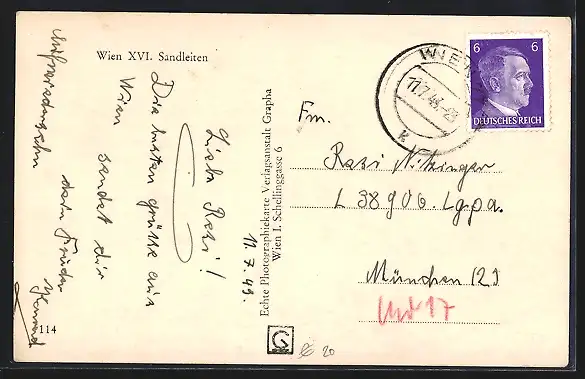 Wien XVI. Sandleiten
Liebe Resi!
Die besten Grüsse aus
Wien sendet dir
dein Bruder
Konrad
Aufwiedersehn
11.7.43.
114
Echte Photographiekarte Verlagsanstalt Grapha
Wien I. Schellinggasse 6
G
WIEN
11.7.43
k
6 6
DEUTSCHES REICH
Fm.
Resi Nitzinger
L 38906 Lgpa.
München (2)
20